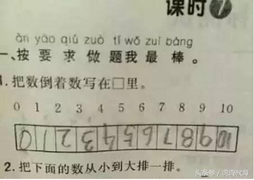 课时 7
àn yāo qiú zuò tí wǒ zuì bàng
一、按要求做题我最棒。
1.把数倒着数写在□里。
0 1 2 3 4 5 6 7 8 9 10
0 1 2 3 4 5 6 7 8 9 10
2.把下面的数从小到大排一排。